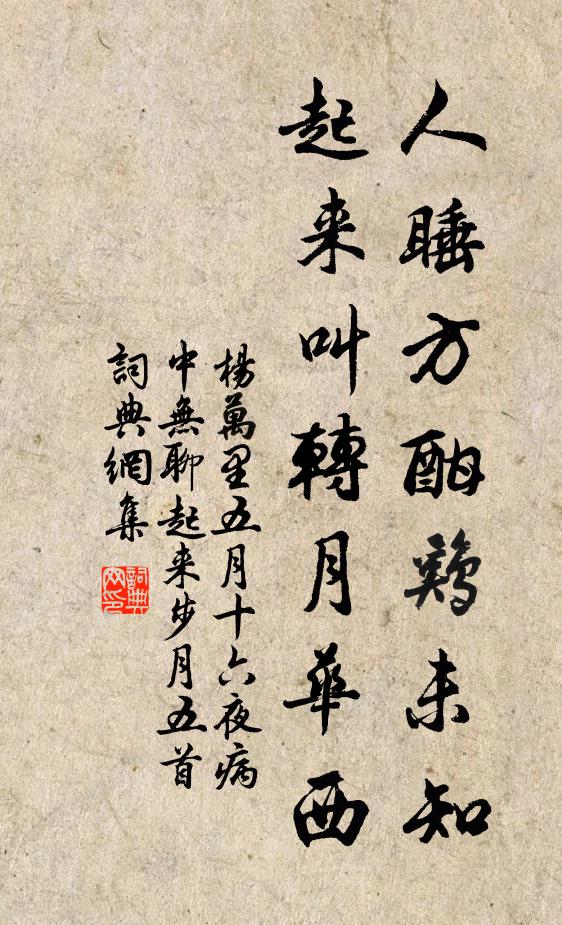 人睡方酣鷄未知
起来叫轉月華西
楊萬里五月十六夜病
中無聊起来步月五首
詞典網集
詞典
网印